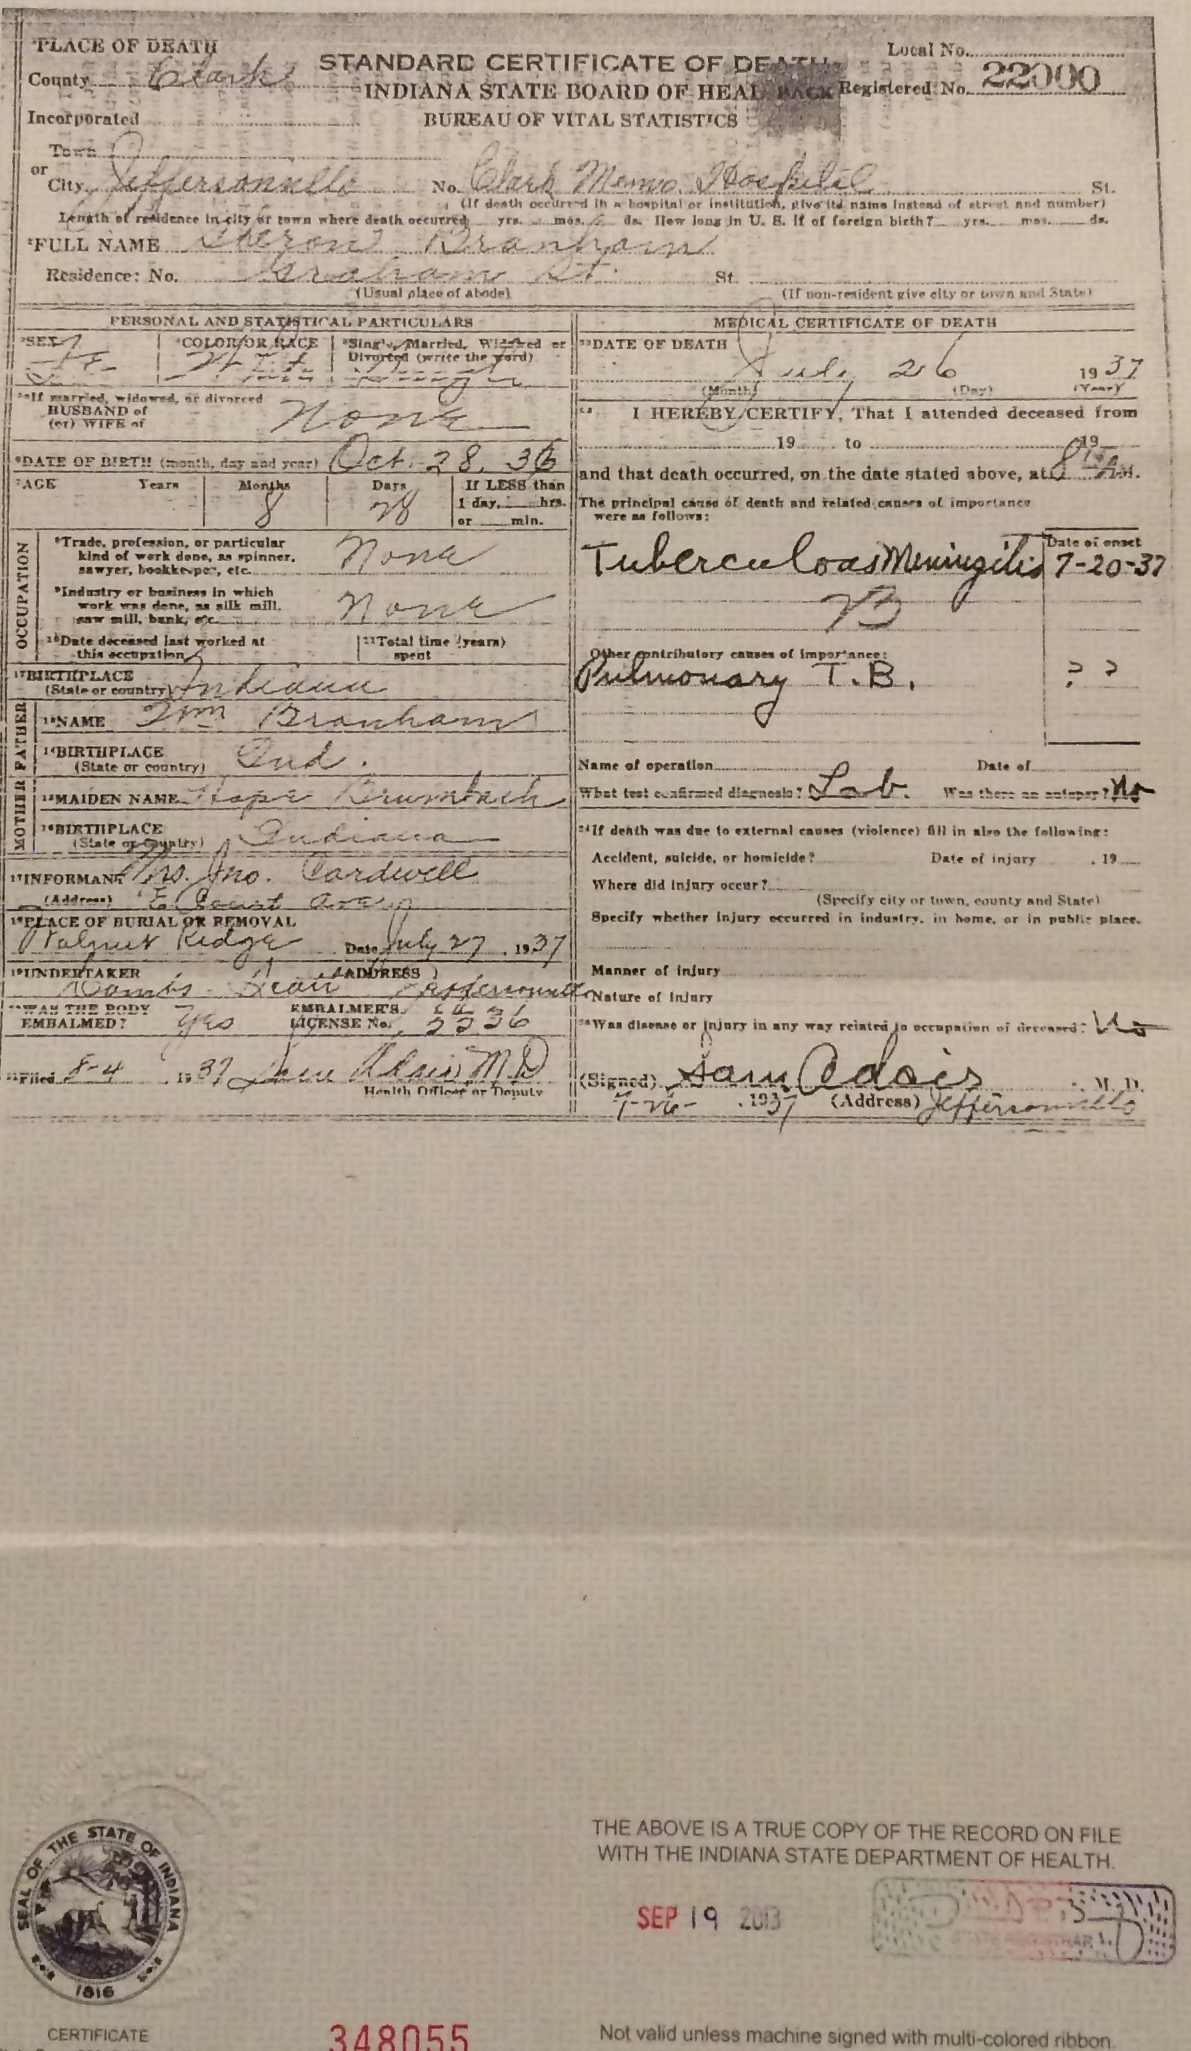 PLACE OF DEATH
County Clark
STANDARD CERTIFICATE OF DEATH
INDIANA STATE BOARD OF HEAL
BUREAU OF VITAL STATISTICS
Local No.
Registered No. 22000
Incorporated
Town
or
City Jeffersonville No. Clark Memo. Hospital St.
(If death occurred in a hospital or institution, give its name instead of street and number)
Length of residence in city or town where death occurred yrs. mos. ds. How long in U. S. if of foreign birth? yrs. mos. ds.
FULL NAME Sharon Branham
Residence: No. Graham St. St.
(Usual place of abode) (If non-resident give city or town and State)
PERSONAL AND STATISTICAL PARTICULARS
SEX F COLOR OR RACE Single, Married, Widowed or
Divorced (write the word)
If married, widowed, or divorced
HUSBAND of
(or) WIFE of None
DATE OF BIRTH (month, day and year) Oct. 28, 36
AGE Years Months Days If LESS than
8 28 1 day, hrs.
or min.
OCCUPATION
Trade, profession, or particular
kind of work done, as spinner,
sawyer, bookkeeper, etc. None
Industry or business in which
work was done, as silk mill,
saw mill, bank, etc. None
Date deceased last worked at
this occupation
Total time (years)
spent
BIRTHPLACE
(State or country) Indiana
FATHER
NAME Wm Branham
BIRTHPLACE
(State or country) Ind.
MOTHER
MAIDEN NAME Hope Brumbach
BIRTHPLACE
(State or country) Indiana
INFORMANT Mrs. Jno. Cardwell
(Address) E Court
PLACE OF BURIAL OR REMOVAL
Walnut Ridge Date July 27, 1937
UNDERTAKER (ADDRESS)
Coombs Jeffersonville
WAS THE BODY
EMBALMED? Yes
EMBALMER'S
LICENSE No.
Filed 8-4, 1937 Sam Adair M.D
Health Officer or Deputy
MEDICAL CERTIFICATE OF DEATH
DATE OF DEATH
July 26 1937
(Month) (Day) (Year)
I HEREBY CERTIFY, That I attended deceased from
19 to 19
and that death occurred, on the date stated above, at 8 A.M.
The principal cause of death and related causes of importance
were as follows:
Date of onset
Tuberculous Meningitis 7-20-37
Other contributory causes of importance:
Pulmonary T.B. ? ?
Name of operation Date of
What test confirmed diagnosis? Lab. Was there an autopsy? No
If death was due to external causes (violence) fill in also the following:
Accident, suicide, or homicide? Date of injury , 19
Where did injury occur?
(Specify city or town, county and State)
Specify whether injury occurred in industry, in home, or in public place.
Manner of injury
Nature of injury
Was disease or injury in any way related to occupation of deceased? No
(Signed) Sam Adair M. D.
7-26- , 1937 (Address) Jeffersonville
SEAL OF THE STATE OF INDIANA
1816
THE ABOVE IS A TRUE COPY OF THE RECORD ON FILE
WITH THE INDIANA STATE DEPARTMENT OF HEALTH.
SEP 19 2013
CERTIFICATE
348055
Not valid unless machine signed with multi-colored ribbon.